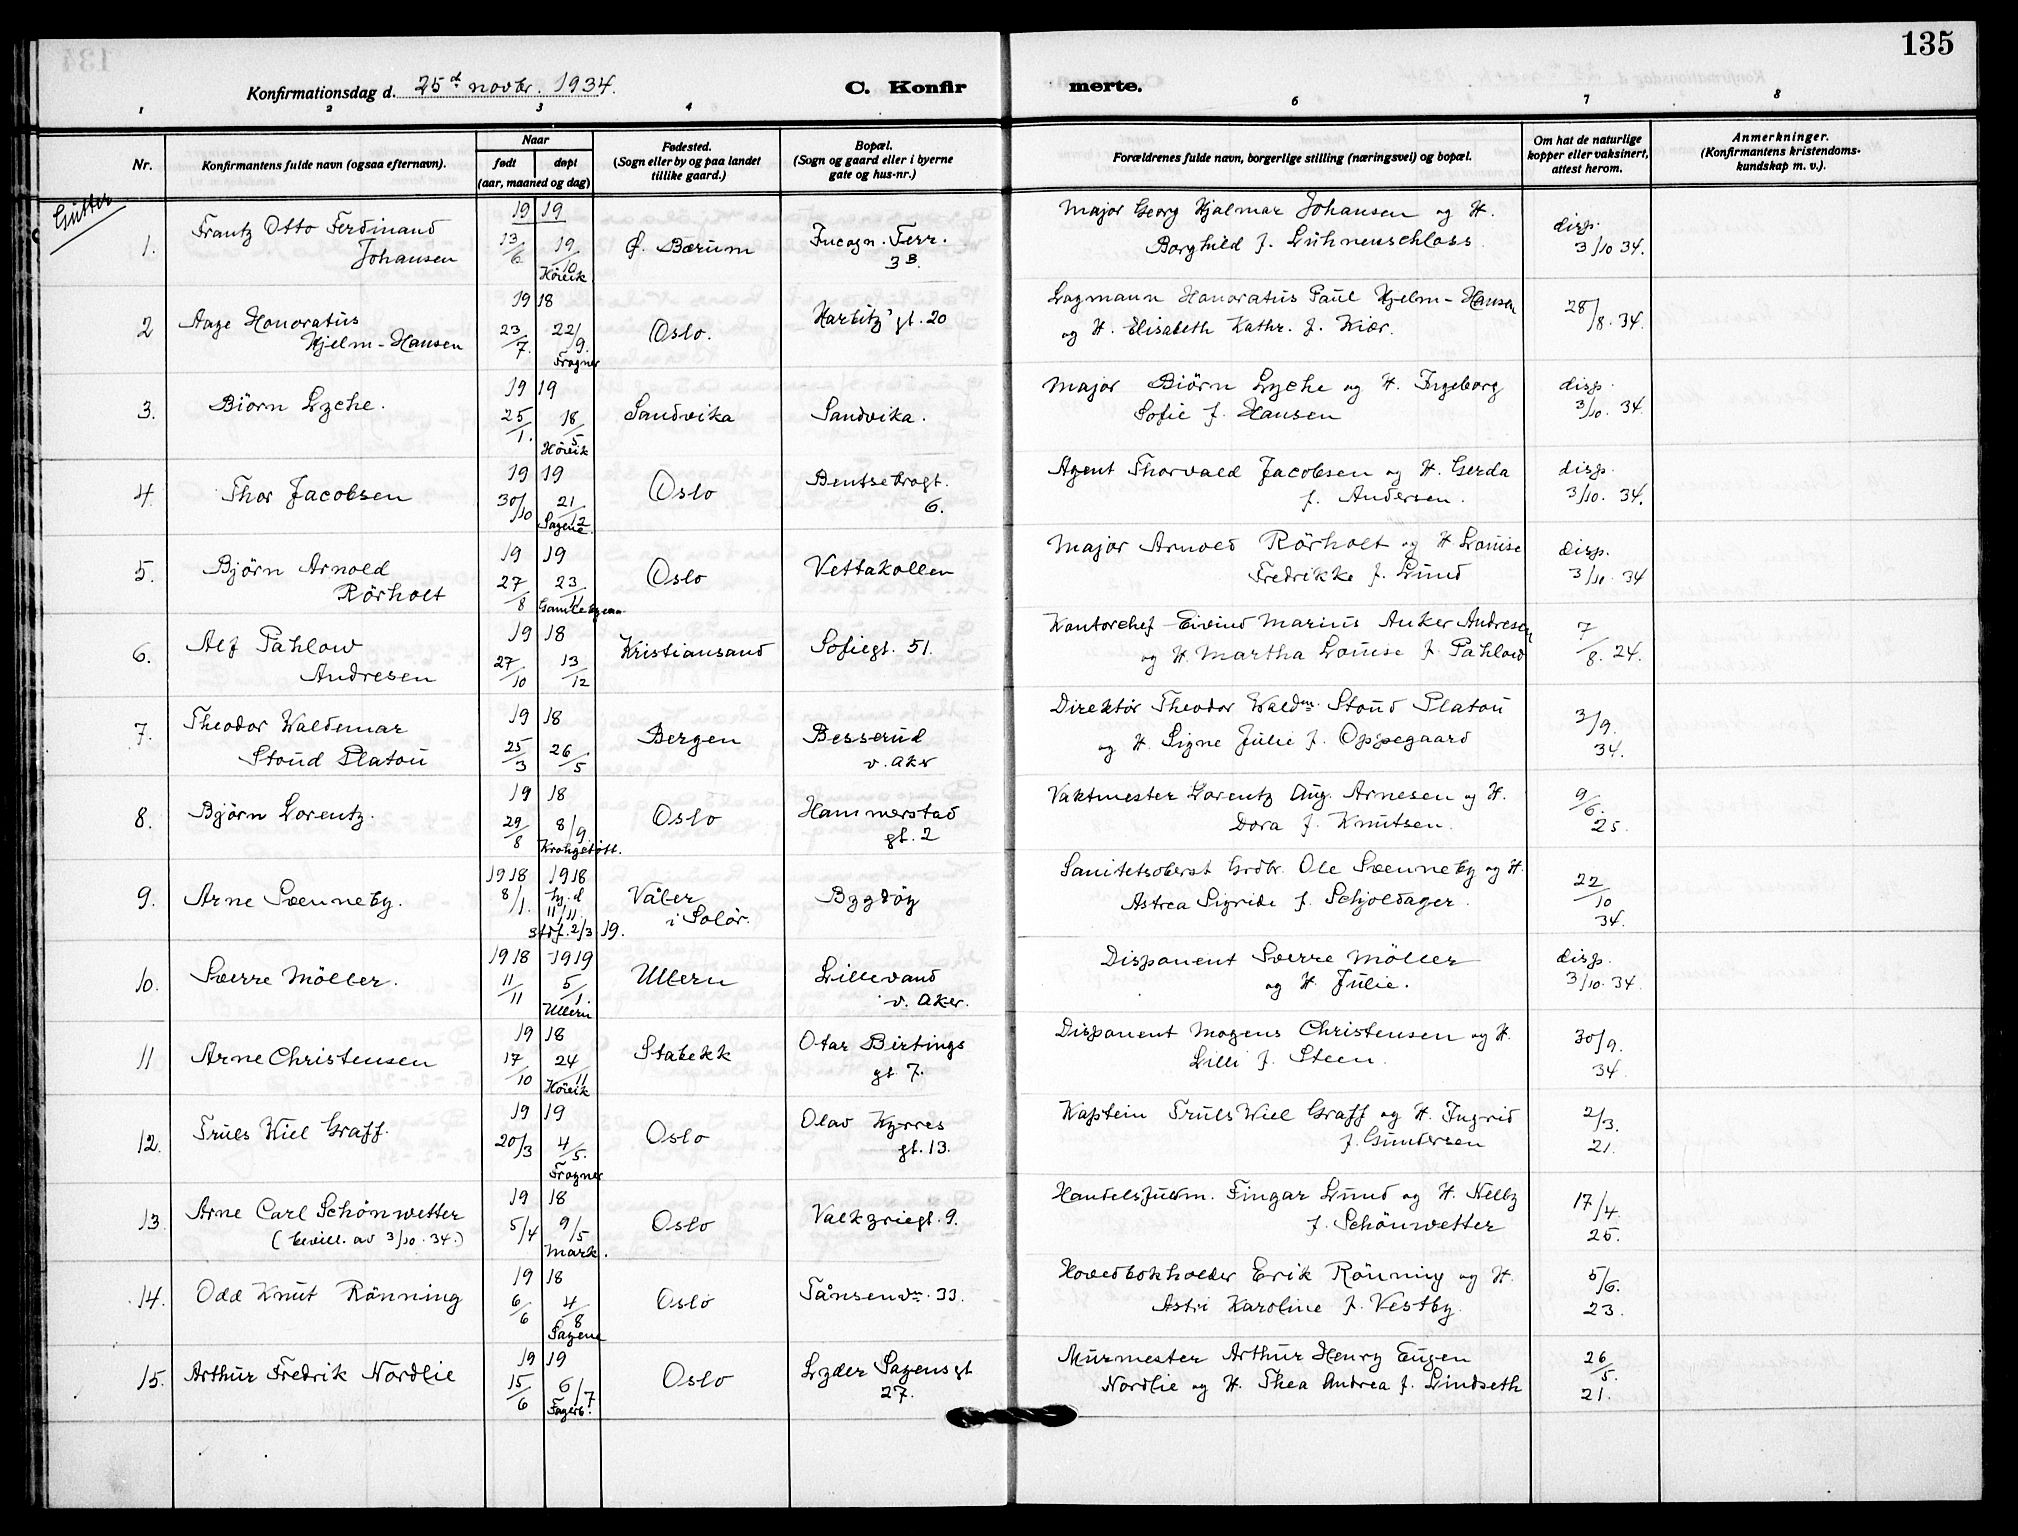 135
Konfirmationsdag d. 25d novbr. 1934.
C. Konfir merte.
1 2 3 4 6 7 8
Nr.
Konfirmantens fulde navn (ogsaa efternavn).
Naar
født døpt
(aar, maaned og dag)
Fødested.
(Sogn eller by og paa landet
tillike gaard.)
Bopæl.
(Sogn og gaard eller i byerne
gate og hus-nr.)
Forældrenes fulde navn, borgerlige stilling (næringsvei) og bopæl.
Om hat de naturlige
kopper eller vaksinert,
attest herom.
Anmerkninger.
(Konfirmantens kristendoms-
kundskap m. v.).
Gutter
19 19 Major Georg Hjalmar Johansen og H.
1. Frantz Otto Ferdinand 13/6 19/10 Ø. Bærum Incogn. Terr. disp.
Johansen Hövik 3 B. Borghild f. Lühnenschloss 3/10 34.
19 18 Lagmann Honoratus Paul Hjelm-Hansen
2 Aage Honoratus 23/7. 22/9. Oslo. Harbitz' gt. 20 28/8. 34.
Hjelm-Hansen Frogner og H. Elisabeth Kathr. f. Kiær.
19 19 Major Biörn Lyche og H. Ingeborg disp.
3. Biörn Lyche. 25/1. 18/5 Sandvika Sandvika. Sofie f. Hansen 3/10. 34.
Hövik
19 19 Agent Thorvald Jacobsen og H. Gerda disp.
4 Thor Jacobsen 30/10 21/12 Oslo Bentsebrogt. f. Andersen. 3/10. 34.
Sagene. 6.
19 19 Major Arnold Rörholt og H Louise disp.
5. Björn Arnold 27/8 23/11 Oslo Vettakollen Fredrikke f. Lund 3/10. 34
Rörholt Gamlebyen
19 18 Kontorchef Eivind Marius Anker Andresen 7/8. 24.
6. Alf Pahlow 27/10 13/12 Kristiansand Sofiegt. 51. og H. Martha Louise f. Pahlow
Andresen
19 18 Direktör Theodor Waldm. Stoud Platou
7. Theodor Waldemar 25/3 26/5 Bergen Besserud 3/9.
Stoud Platou v. Aker og H. Signe Julie f. Oppegaard 34.
19 18 Vaktmester Lorentz Aug. Arnesen og H. 9/6.
8. Björn Lorentz. 29/8 8/9. Oslo Hammerstad Dora f. Knutsen. 25.
Krohgstött. gt. 2
1918 1918 Sanitetsoberst Ole Svenneby og H.
9. Arne Svenneby. 8/1. hj.d 11/11. Våler Bygdöy Astrea Sigride f. Schjoldager. 22/10
stdf. 2/3. 19. i Solör. 34.
1918 1919 Disponent Sverre Möller disp.
10. Sverre Möller. 11/11 5/1 Ullern Lillevand og H. Julie. 3/10. 34.
Ullern v. Aker.
19 18 Disponent Mogens Christensen og H. 30/9.
11 Arne Christensen 17/10 24/11 Stabekk Otar Birtings Lilli f. Steen. 34.
Hövik gt. 7.
19 19 Kaptein Truls Wiel Graff og H. Ingrid 2/3.
12. Truls Wiel Graff. 20/3 4/5. Oslo Olav Kyrres f. Gundersen 21.
Frogner gt. 13.
19 18 Fingar Lund og H. Nelly 17/4.
13. Arne Carl Schönwetter 5/4 9/5 Oslo Valkyriegt. 9. f. Schönwetter 25.
(bevill. av 3/10. 34.) Mark.
19 18 Hovedbokholder Erik Rönning og H. 5/6.
14. Odd Knut Rönning 6/6 4/8 Oslo Tåsenvn. 33. Astri Karoline f. Vestby. 23.
Sagene
19 19 Murmester Arthur Henry Eugen 26/5.
15. Arthur Fredrik Nordlie 15/6 6/7 Oslo Lyder Sagensgt Nordlie og H. Thea Andrea f. Lindseth 21.
Fagerb. 27.